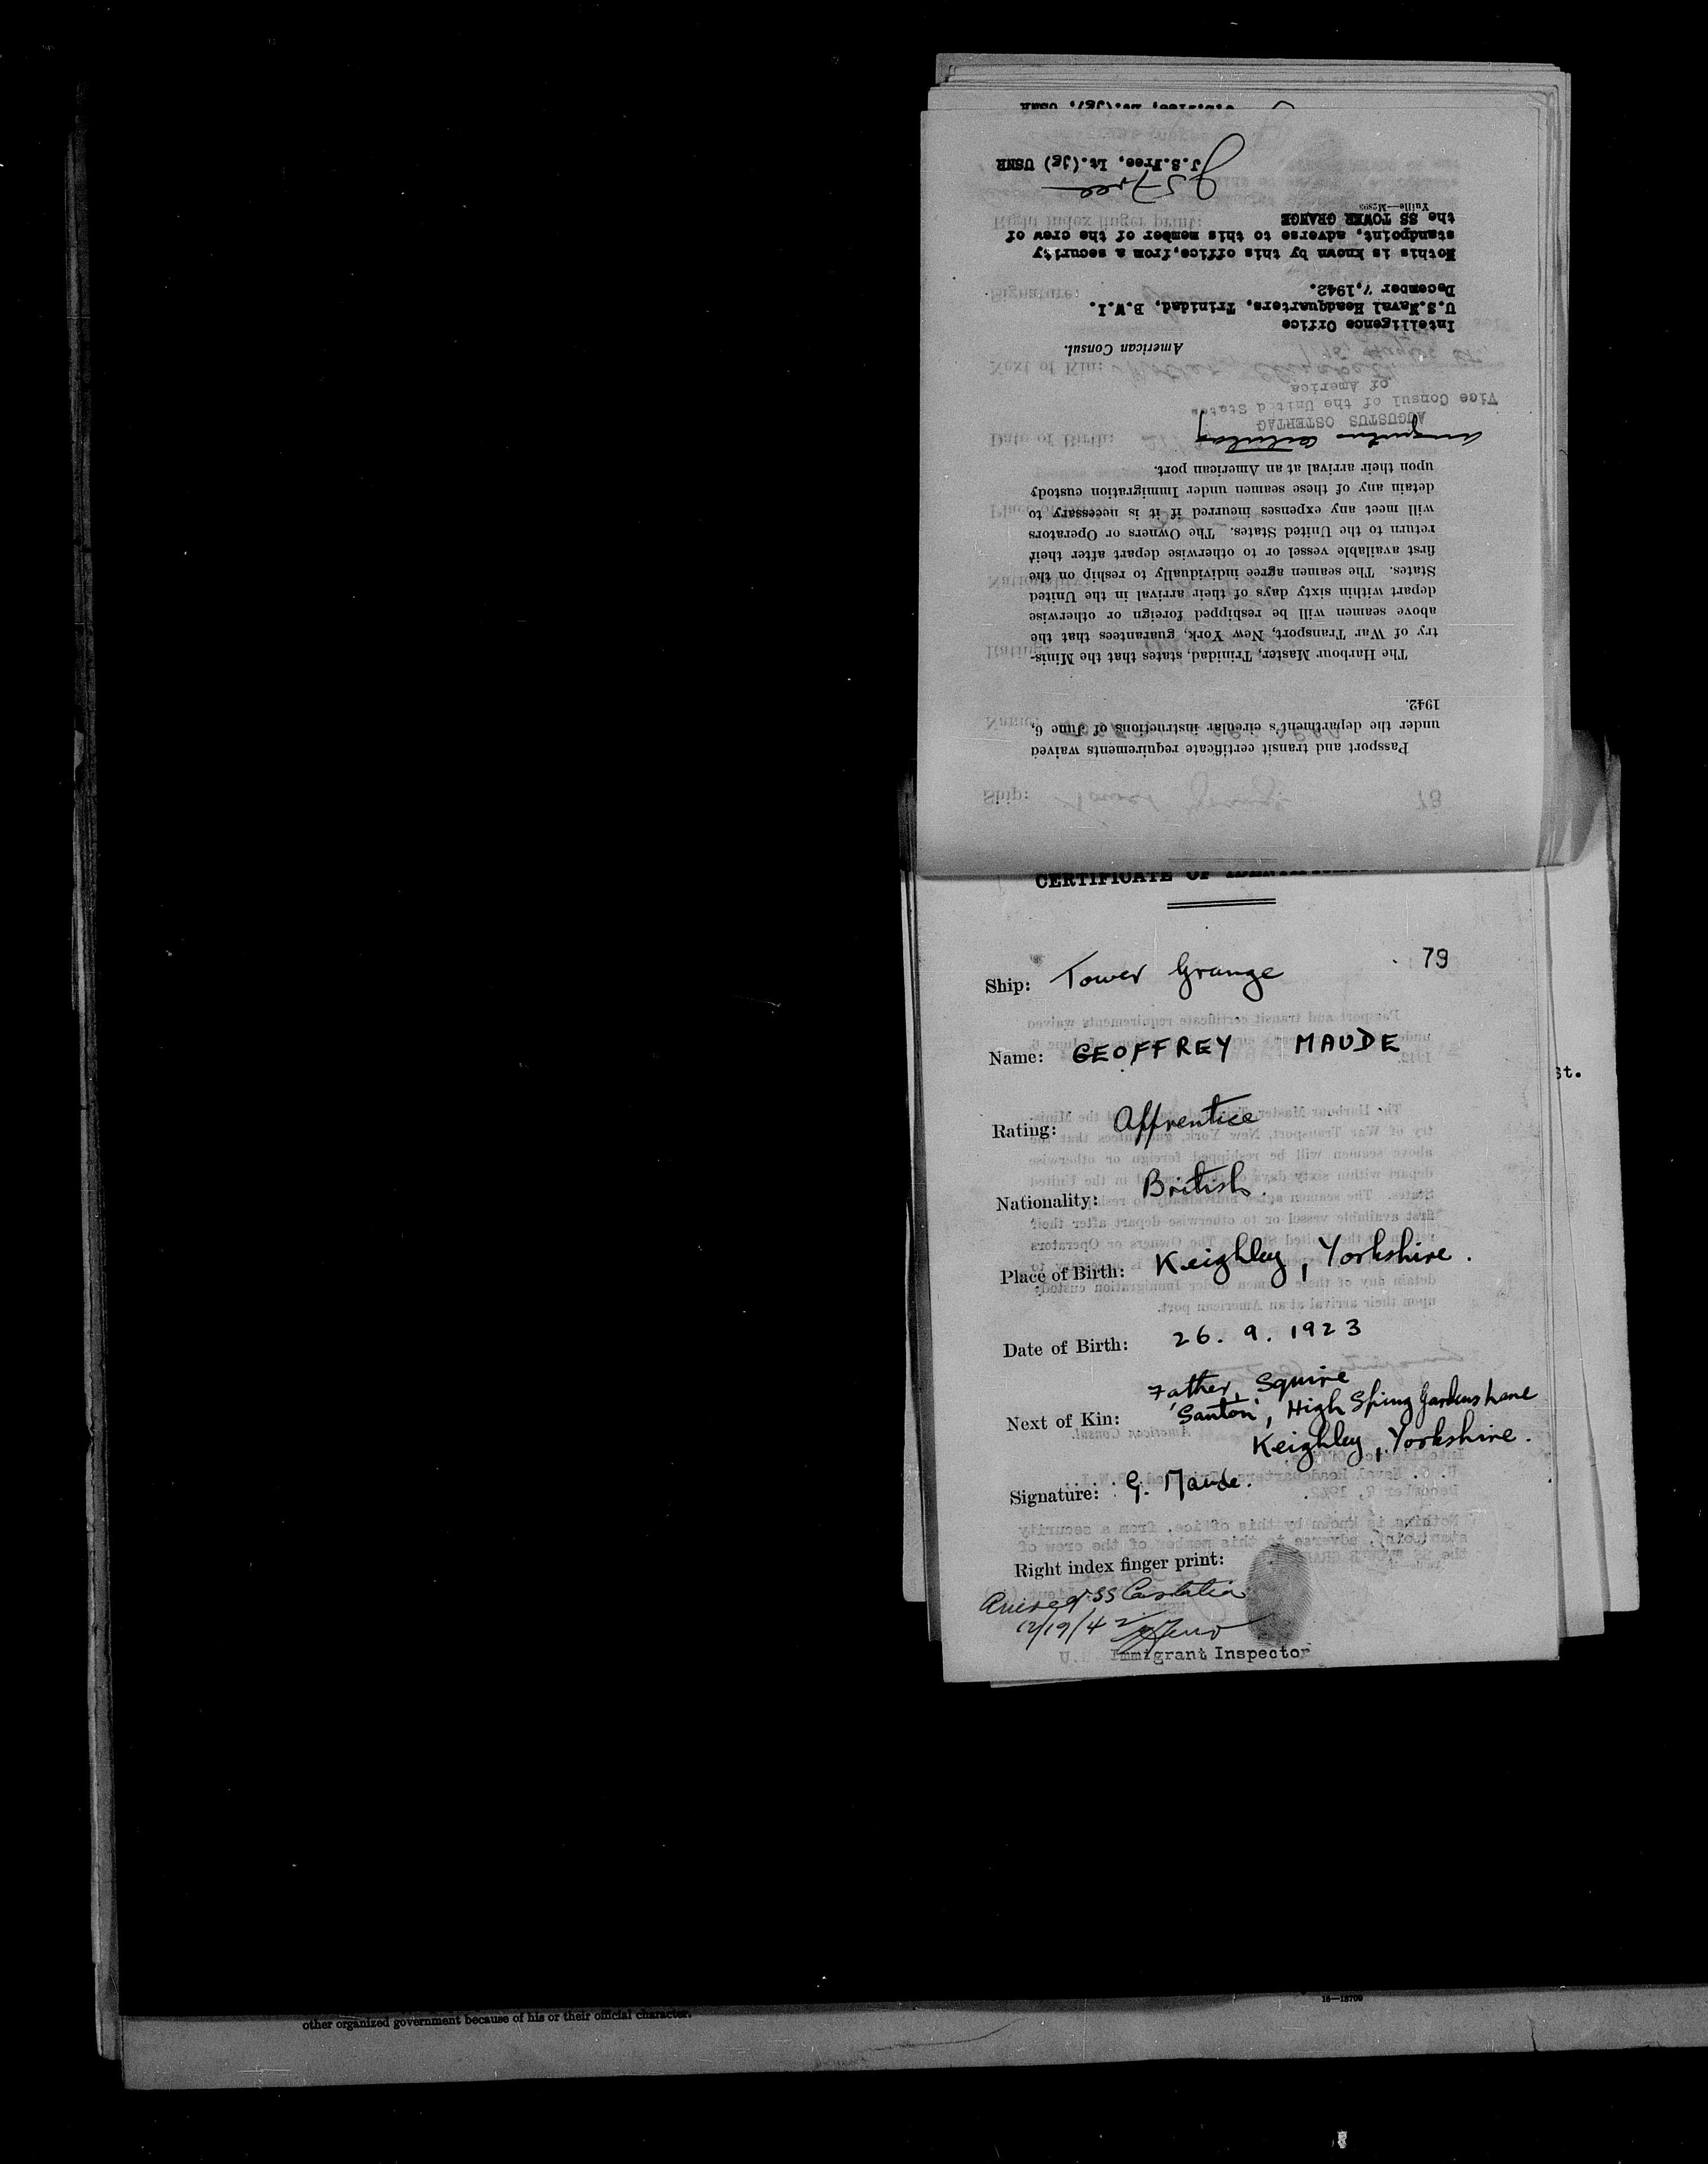 J.S.Free, Lt.(jg) USNR
J S Free
Yuille—M2893
the SS TOWER GRANGE
standpoint, adverse to this member of the crew of
Nothis is known by this office,from a security
December 7,1942.
U.S.Naval Headquarters, Trinidad, B.W.I.
Intelligence Office
American Consul.
of America
Vice Consul of the United States
AUGUSTUS OSTERTAG
Augustus Ostertag
upon their arrival at an American port.
detain any of these seamen under Immigration custody
will meet any expenses incurred if it is necessary to
return to the United States. The Owners or Operators
first available vessel or to otherwise depart after their
States. The seamen agree individually to reship on the
depart within sixty days of their arrival in the United
above seamen will be reshipped foreign or otherwise
try of War Transport, New York, guarantees that the
The Harbour Master, Trinidad, states that the Minis-
1942.
under the department's circular instructions of June 6,
Passport and transit certificate requirements waived
CERTIFICATE OF
79
Ship: Tower Grange
Name: GEOFFREY MAUDE
Rating: Apprentice
Nationality: British.
Place of Birth: Keighley, Yorkshire.
Date of Birth: 26. 9. 1923
Father, Squire
Next of Kin: 'Santon', High Spring Gardens Lane
Keighley, Yorkshire.
Signature: G. Maude.
Right index finger print:
Arrived SS
12/19/42
U. Immigrant Inspector
st.
16—18700
other organized government because of his or their official character.